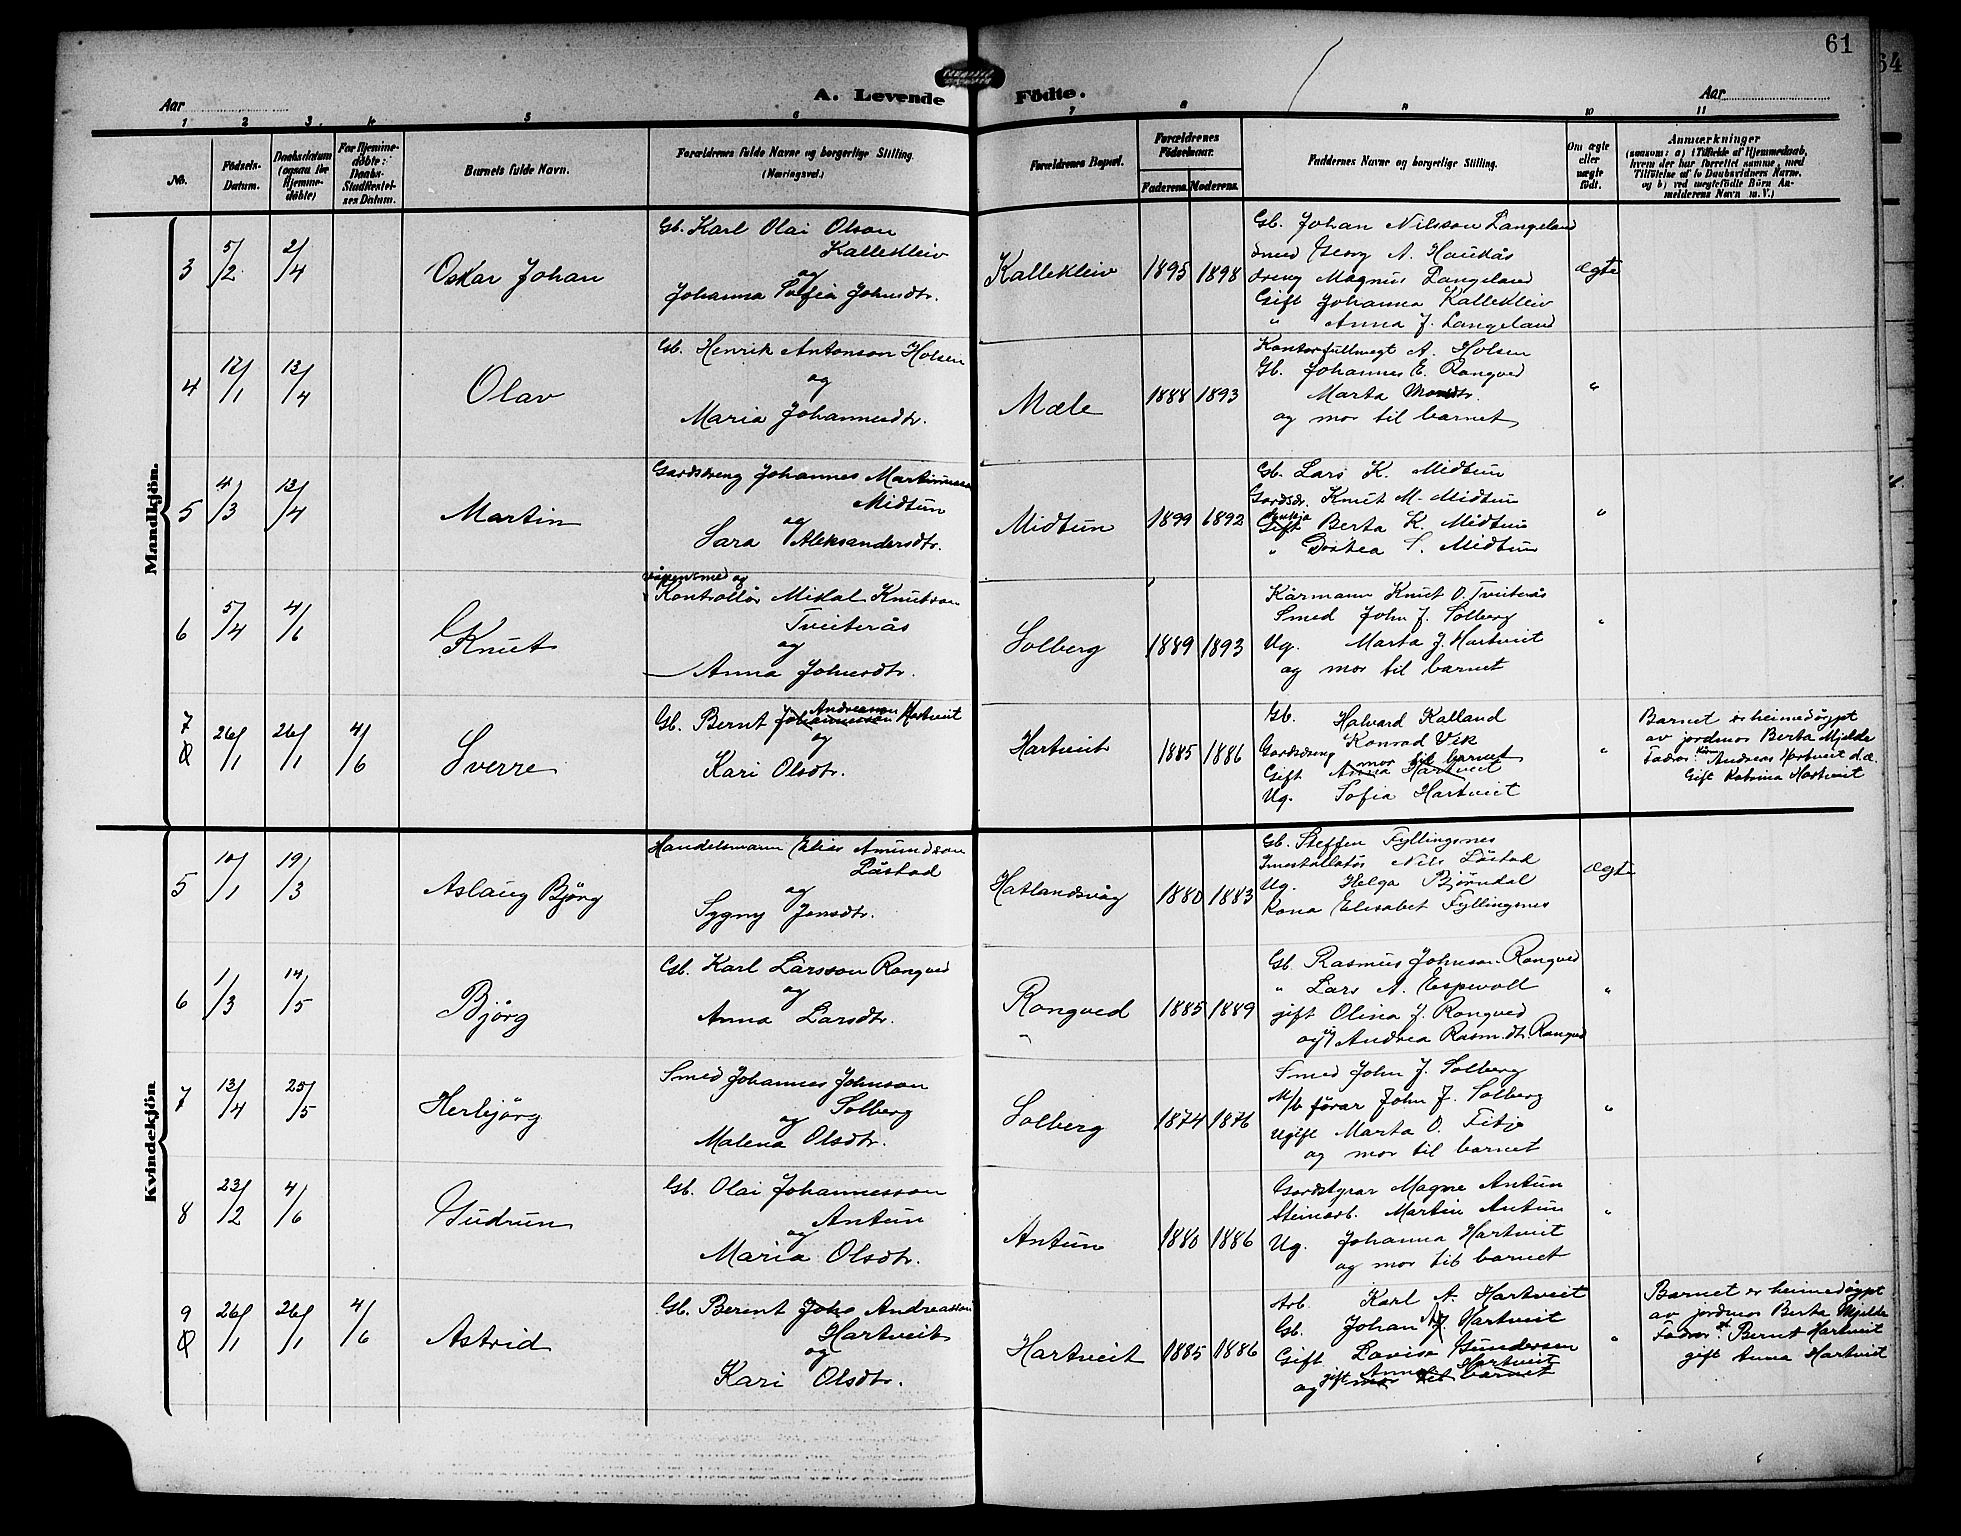 61
64
A. Levende Födte.
Aar
Aar
1 2 3. 4 5 6 7 8 9 10 11
No.
Födsels-
Datum.
Daabsdatum
(ogsaa for
Hjemme-
døbte)
For Hjemme-
døbte:
Daabs-
Stadfestel-
ses Datum.
Barnets fulde Navn.
Forældrenes fulde Navne og borgerlige Stilling.
(Næringsvei.)
Forældrenes Bopæl.
Forældrenes
Födselsaar.
Faderens. Moderens.
Faddernes Navne og borgerlige Stilling.
Om ægte
eller
uægte
født.
Anmærkninger
(saasom: a) i Tilfælde af Hjemmedaab,
hvem der har forrettet samme, med
Tilföielse af to Daabsvidners Navne,
og b) ved uægtefödte Börn An-
melderens Navn m. V.)
Mandkjön.
3 5/2 2/4 Oskar Johan
Gb. Karl Olai Olson
Kallekleiv
og
Johanna Sofia Johnsdtr.
Kallekleiv 1895 1898
Gb. Johan Nilsson Langeland
Smed Georg A. Haukås
dreng Magnus Langeland
Gift Johanna Kallekleiv
" Anna J. Langeland
ægte
4 12/1 13/4 Olav
Gb. Henrik Antonson Holsen
og
Maria Johannesdtr.
Mæle 1888 1893
Kontorfullmegt A. Holsen
Gb. Johannes E. Rongved
Marta Monsdtr.
og mor til barnet
"
5 4/3 13/4 Martin
Gardsdreng Johannes Martinusson
Midtun
og
Sara Aleksandersdtr.
Midtun 1899 1892
Gb. Lars K. Midtun
Gardsdr. Knut M. Midtun
Gift Berta K. Midtun
" Dortea S. Midtun
"
6 5/4 4/6 Knut
våpensmed og
Kontrollør Mikal Knutson
Tveiterås
og
Anna Johnsdtr.
Solberg 1889 1893
Kårmann Knut O. Tveiterås
Smed John J. Solberg
Ug. Marta J. Hartveit
og mor til barnet
"
7 8 26/1 26/1 4/6 Sverre
Andreasson
Gb. Bernt Johannesson Hartveit
og
Kari Olsdtr.
Hartveit 1885 1886
Gb. Halvard Kalland
Gardsdreng Konrad Vik
mor til barnet
Gift Anna Hartveit
Ug. Sofia Hartveit
"
Barnet er heimedøypt
av jordmor Berta Mjelde
Fadrar: Kårm. Andreas Hartveit d.e.
Gift Katrina Hartveit
Kvindekjön
5 10/1 19/3 Aslaug Bjørg
Handelsmann Elias Amundson
Låstad
og
Sygny Jensdtr.
Hatlandsvåg 1880 1883
Gb. Steffen Fyllingsnes
Innstallatør Nils Låstad
Ug. Helga Bjørndal
Kona Elisabet Fyllingsnes
ægte
6 1/3 14/5 Bjørg
Gb. Karl Larsson Rongved
og
Anna Larsdtr.
Rongved 1885 1889
Gb. Rasmus Johnson Rongved
" Lars A. Espevoll
gift Olina J. Rongved
og ug Andrea Rasm.dtr. Rongved
"
7 13/4 25/5 Herbjørg
Smed Johannes Johnson
Solberg
og
Malena Olsdtr.
Solberg 1874 1876
Smed John J. Solberg
M/b förar John J. Solberg
Ugift Marta O. Fitje
og mor til barnet
"
8 23/2 4/6 Gudrun
Gb. Olai Johannesson
Antun
og
Maria Olsdtr.
Antun 1880 1886
Gardstyrar Magne Antun
Steinarb. Martin Antun
Ug. Johanna Hartveit
og mor til barnet
"
9 8 26/1 26/1 4/6 Astrid
Gb. Berent Joha Andreasson
Hartveit
og
Kari Olsdtr.
Hartveit 1885 1886
Arb. Karl A. Hartveit
Gb. Johan A. Hartveit
Gift Lovisa Gundersen
og gift Anna Hartveit
mor til barnet
"
Barnet er heimedøypt
av jordmor Berta Mjelde
Fadrar: Bernt Hartveit
gift Anna Hartveit